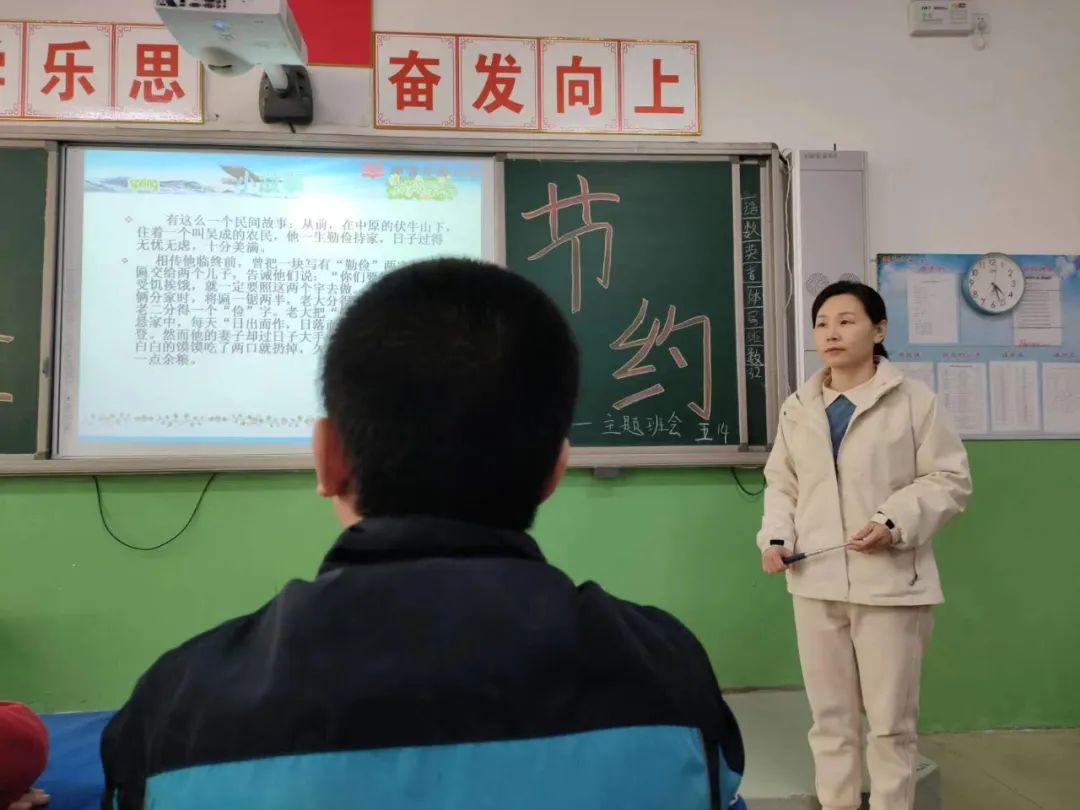 乐思
奋发向上
spring
小故事
有这么一个民间故事：从前，在中原的伏牛山下，
住着一个叫吴成的农民，他一生勤俭持家，日子过得
无忧无虑，十分美满。
相传他临终前，曾把一块写有“勤俭”两
匾交给两个儿子，告诫他们说：“你们要
受饥挨饿，就一定要照这两个字去做
俩分家时，将匾一锯两半，老大分得
老二分得一个“俭”字。老大把“
悬家中，每天“日出而作，日落而
登。然而他的妻子却过日子大手
白白的馍馍吃了两口就扔掉，久
一点余粮。
节约
一主题班会 五14
语数英音体
班数
32